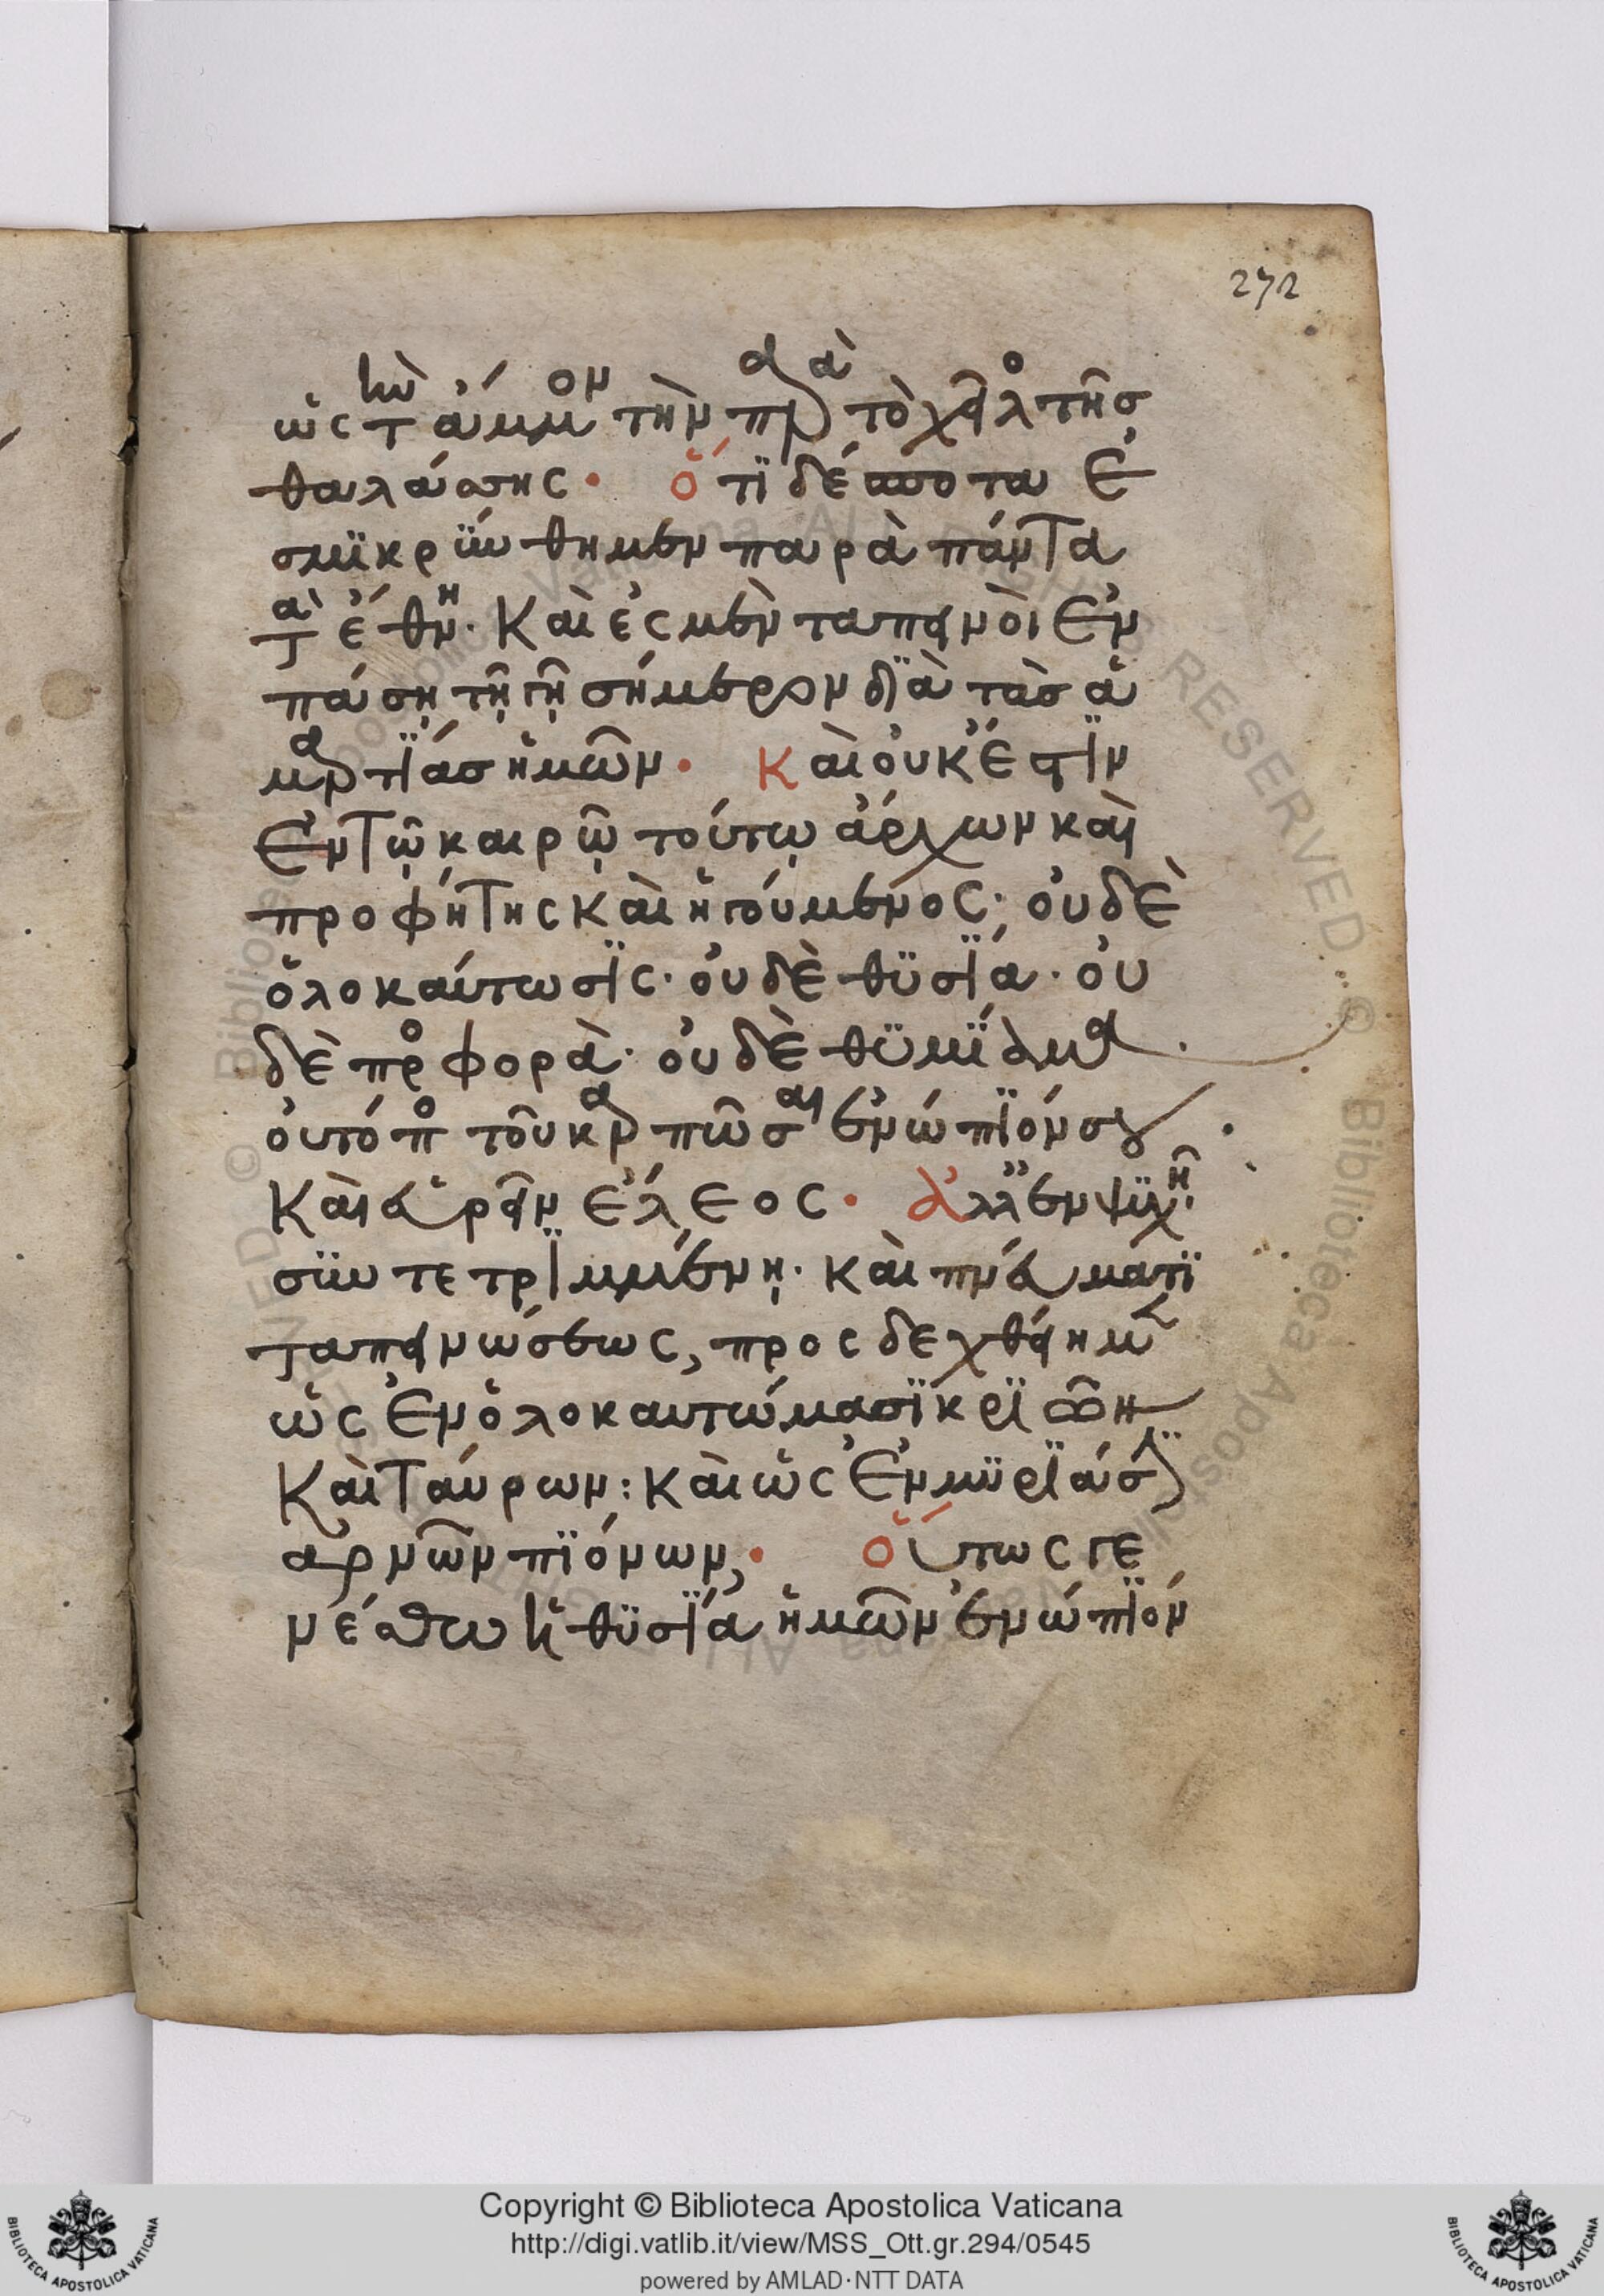 272
ὡς τὴν ἄμμον τὴν παρὰ τὸ χεῖλος τῆς
θαλάσσης· ὅτι δέσποτα ἐ
σμικρύνθημεν παρὰ πάντα
τὰ ἔθνη· καὶ ἐσμὲν ταπεινοὶ ἐν
πάση τῇ γῇ σήμερον διὰ τὰσ ἁ
μαρτίασ ἡμῶν· καὶ οὐκ ἔστιν
ἐν τῷ καιρῷ τούτῳ ἄρχων καὶ
προφήτης καὶ ἡγούμενος· οὐδὲ
ὁλοκαύτωσις· οὐδὲ θυσία· οὐ
δὲ προσφορὰ· οὐδὲ θυμίαμα·
οὐ τόπος τοῦ καρπῶσαι ἐνώπιόν σου
καὶ εὑρεῖν ἔλεος· ἀλλ' ἐν ψυχῇ
συντετριμμένῃ· καὶ πνεύματι
ταπεινώσεως, προσδεχθείημεν
ὡς ἐν ὁλοκαυτώμασι κριῶν
καὶ ταύρων: καὶ ὡς ἐν μυριάσιν
αρνῶν πιόνων, οὕτως γε
νέσθω ἡ θυσία ἡμῶν ἐνώπιόν
Copyright © Biblioteca Apostolica Vaticana
http://digi.vatlib.it/view/MSS_Ott.gr.294/0545
powered by AMLAD·NTT DATA
BIBLIOTECA APOSTOLICA VATICANA
BIBLIOTECA APOSTOLICA VATICANA